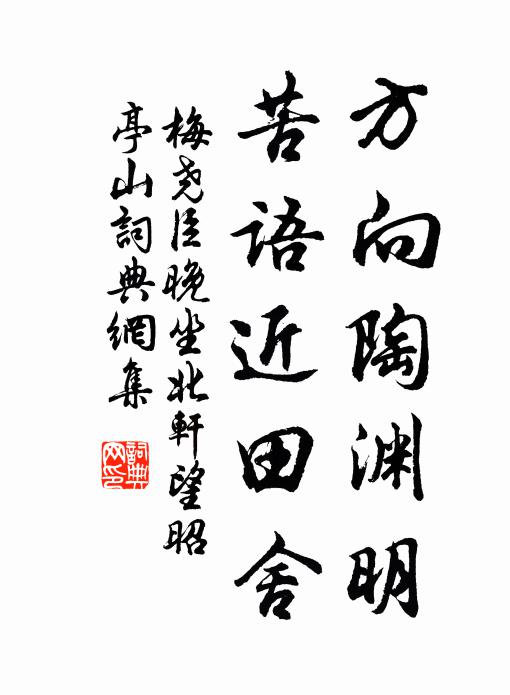 方向陶渊明
苦语近田舍
梅尧臣晚坐北轩望昭
亭山詞典網集
詞典
网印